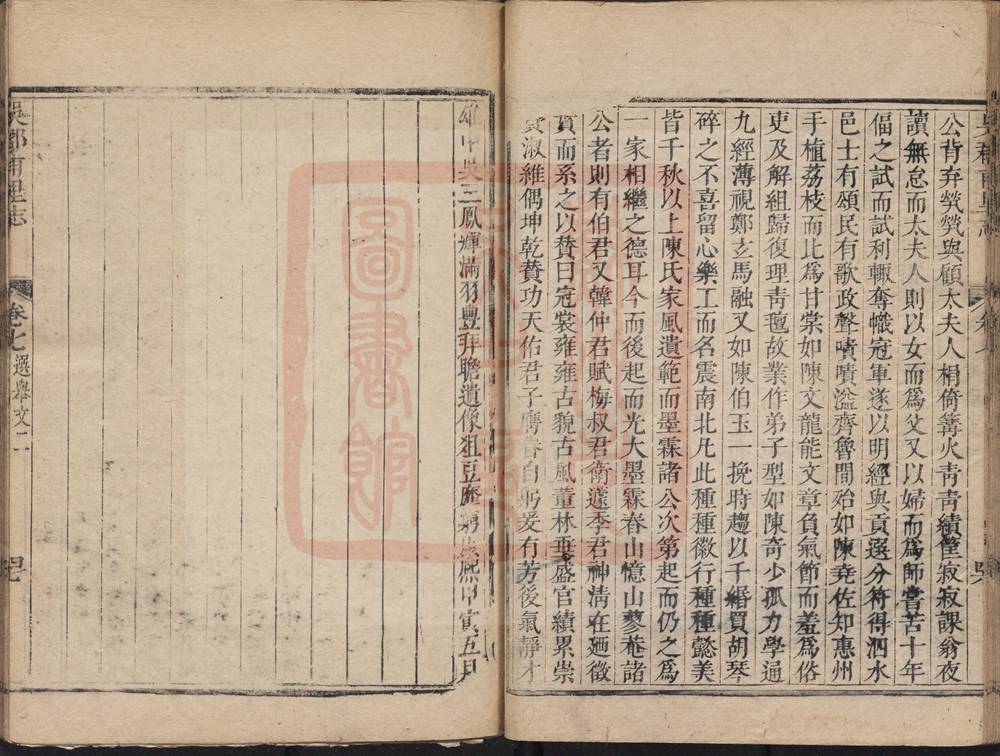 公背弃煢煢與顧太夫人相倚篝火靑靑績筐寂寂課翁夜
讀無怠而太夫人則以女而爲父又以婦而爲師嘗苦十年
偪之試而試利輙奪幟冠軍遂以明經與貢選分符得泗水
邑士有頌民有歌政聲嘖嘖溢齊魯間殆如陳堯佐知惠州
手植荔枝而比爲甘棠如陳文龍能文章負氣節而羞爲俗
吏及解組歸復理靑氊故業作弟子型如陳奇少孤力學通
九經薄視鄭玄馬融又如陳伯玉一挽時趨以千緡買胡琴
碎之不喜留心樂工而名震南北凡此種種徽行種種懿美
皆千秋以上陳氏家風遺範而墨霖諸公次第起而仍之爲
一家相繼之德耳今而後起而光大墨霖春山憶山蓼菴諸
公者則有伯君又韓仲君賦梅叔君衛蘧季君神淸在廼徵
實而系之以賛曰冠裳雍雍古貌古風董林垂盛官績累崇
淑維偶坤乾賛功天佑君子膺眷自躬爰有芳後氣靜才
雄中吳三鳳輝滿羽豐拜瞻遺像俎豆歷 熙甲寅五月
吳郡甫里志
卷七
選舉文二